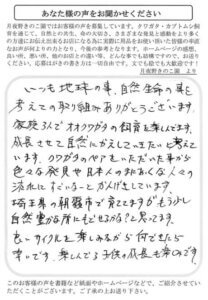 あなた様の声をお聞かせください
月夜野きのこ園ではお客様の声を募集しています。クワガタ・カブトムシ飼
育を通じて、自然との共生、命の大切さ、さまざまな発見と感動をより多く
の方達にお伝え出来るお店になる為に実際に用品をお使い頂いた皆様の率直
なお声が何よりの力となり、今後の参考となります。ホームページの感想、
良い所、悪い所、他のお店との違い等、どんな事でも結構ですのでお聞かせ
ください。応募はがきの書き方は一切自由です。文でも絵でも大歓迎です！
月夜野きのこ園 より
いつも地球の事、自然、生命の事を
考えての取り組みありがとうございます。
家族で、オオクワガタの飼育を楽しんでます。
成長させて自然にかえしていきたいと考えて
います。クワガタのペアをいただいた事から
色々な発見や日本人のあたたかい人との
流れにすごいなーとかんげきしています。
埼玉県の朝霞市で育ててますがもう少し
自然豊かな所にもどせるかな？と思ってます。
良いサイクルを楽しみながら何でできたら
幸いです。楽しんでる子供の成長も幸のです。
このお客様の声を書籍など紙面やホームページなどで、ご紹介させてい
ただくことがございます。ご了承の上お送り下さい。